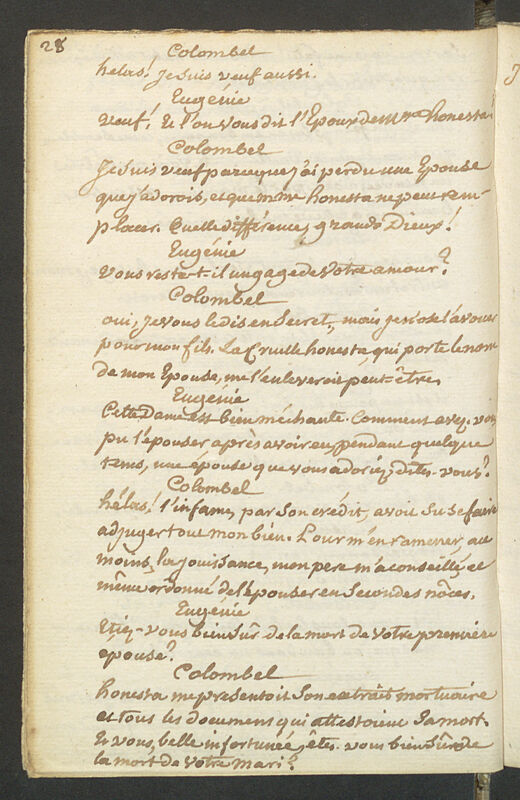 28
Colombel
hélas! Je suis veuf aussi.
Eugénie
veuf! Et l'on vous dit l'Epoux de Mme honesta.
Colombel
Je suis veuf parceque j'ai perdu une Epouse
que j'adorois, et que mme honesta ne peut rem-
placer. Quelle différence, grands Dieux!
Eugénie
vous reste-t-il un gage de votre amour?
Colombel
oui, Je vous le dis en Secret, mais je n'ose l'avouer
pour mon fils. La Cruelle honesta qui porte le nom
de mon Epouse, me l'enleveroit peut-être.
Eugénie
Cette Dame est bien méchante. Comment avez-vous
pu l'épouser après avoir eu, pendant quelque
tems, une épouse que vous adoriez, dites-vous?
Colombel
hélas! l'infame, par Son crédit, avoit Su se faire
adjuger tout mon bien. Pour m'en ramener, au
moins, la jouissance, mon pere m'a conseillé, et
même ordonné de l'épouser en Secondes nôces.
Eugénie
Etiez-vous bien Sûr de la mort de votre premiére
epouse?
Colombel
honesta me présentoit Son extrait mortuaire
et tous les documens qui attestoient Sa mort.
Et vous, belle infortunée, êtes-vous bien Sûre de
la mort de votre mari?